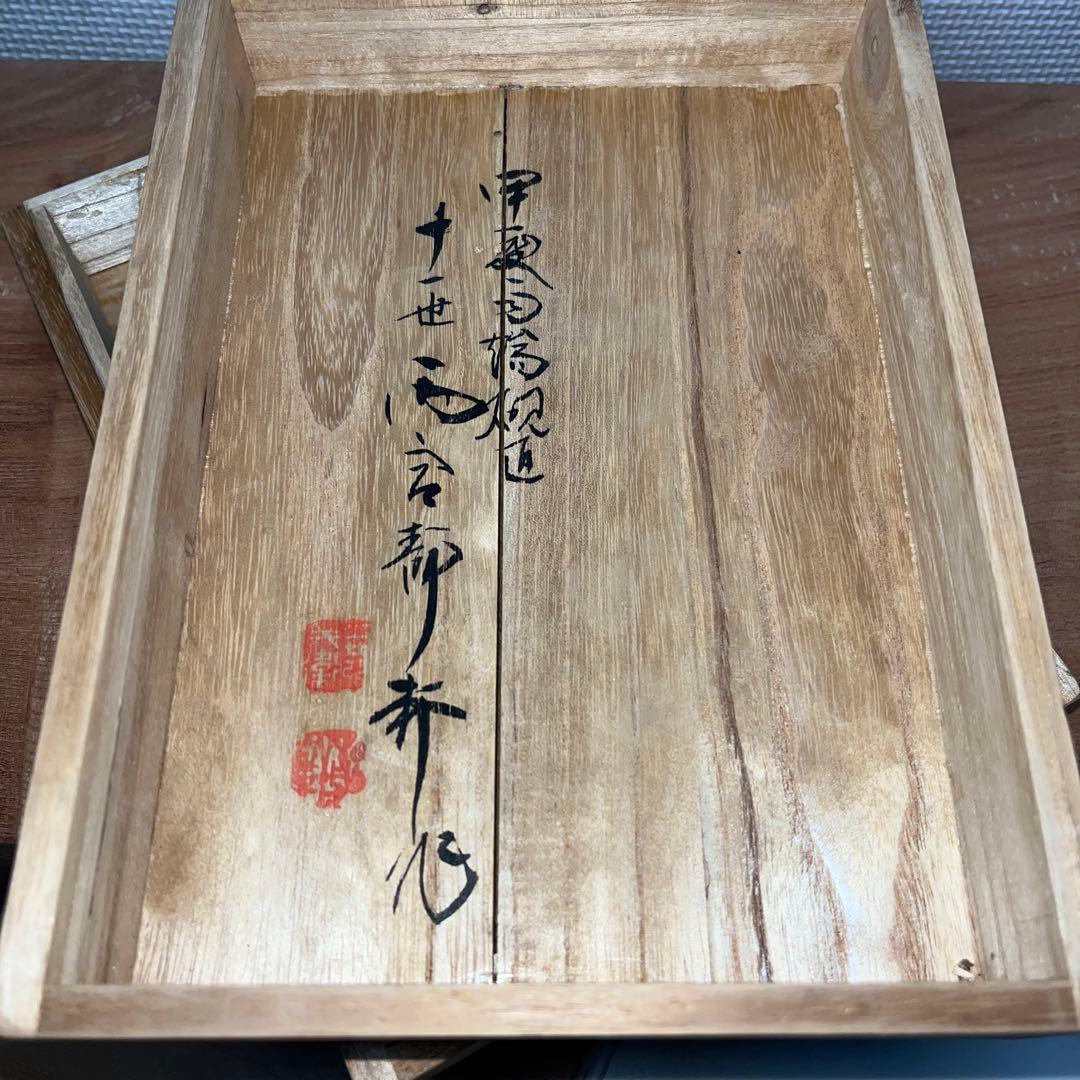 甲斐雨端硯
十一世雨宮静軒作